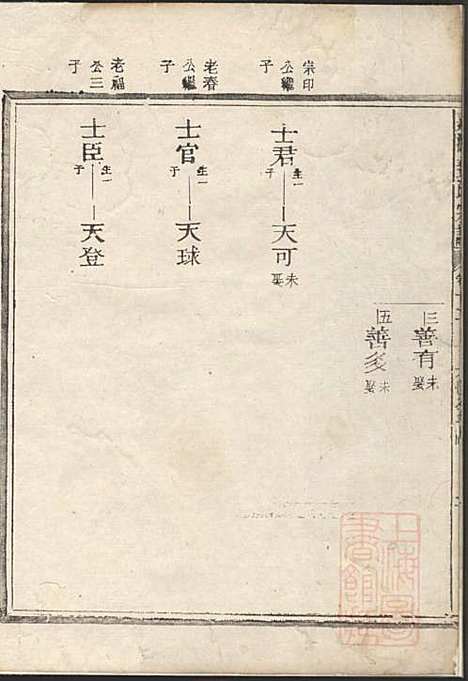 崇印公繼子
老春公繼子
老福公三子
三善有未娶
五善多未娶
士君生一子天可未娶
士官生一子天球
士臣生一子天登
上海圖書館藏